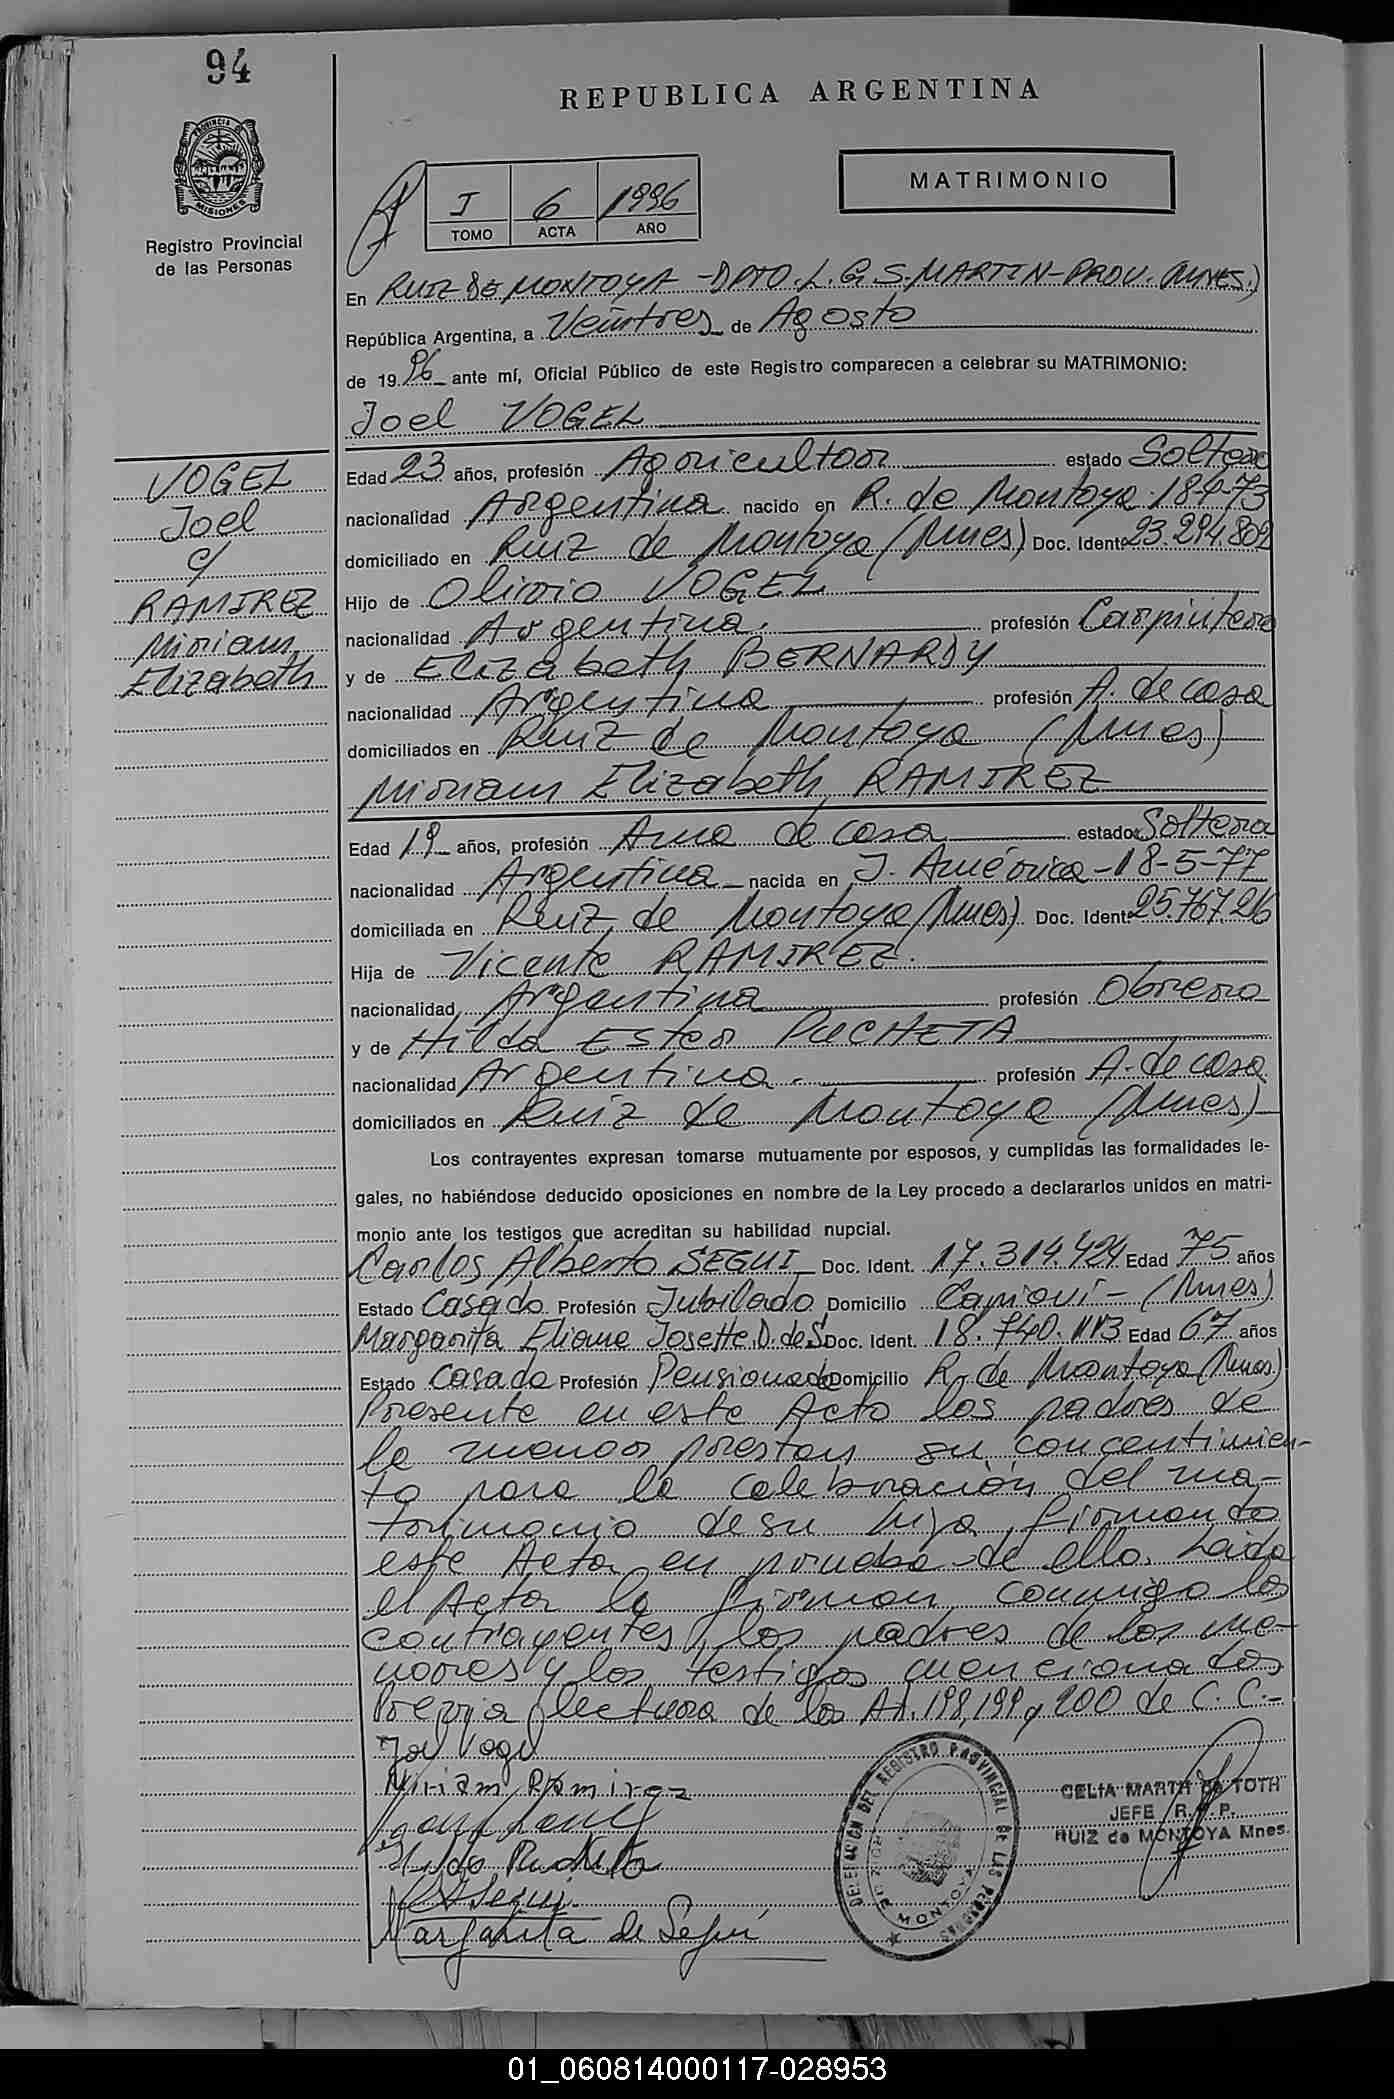 94
REPUBLICA ARGENTINA
PROVINCIA DE
MISIONES
Registro Provincial
de las Personas
MATRIMONIO
I 6 1996
TOMO ACTA AÑO
En RUIZ DE MONTOYA - DPTO. L. G. S. MARTIN - PROV. (MNES.)
República Argentina, a Veintres de Agosto
de 19 96 ante mí, Oficial Público de este Registro comparecen a celebrar su MATRIMONIO:
Joel VOGEL
VOGEL
Joel
c/
RAMIREZ
Miriam
Elizabeth
Edad 23 años, profesión Agricultor estado Soltero
nacionalidad Argentina nacido en R. de Montoya 18-4-73
domiciliado en Ruiz de Montoya (Mnes) Doc. Ident. 23.294.802
Hijo de Olivio VOGEL
nacionalidad Argentina. profesión Carpintero
y de Elizabeth BERNARDY
nacionalidad Argentina profesión A. de casa
domiciliados en Ruiz de Montoya (Mnes)
Miriam Elizabeth RAMIREZ
Edad 19 años, profesión Ama de casa estado Soltera
nacionalidad Argentina nacida en J. América - 18-5-77
domiciliada en Ruiz de Montoya (Mnes). Doc. Ident. 25.767.216
Hija de Vicente RAMIREZ.
nacionalidad Argentina profesión Obrero
y de Hilda Ester PUCHETA
nacionalidad Argentina. profesión A. de casa
domiciliados en Ruiz de Montoya (Mnes)
Los contrayentes expresan tomarse mutuamente por esposos, y cumplidas las formalidades le-
gales, no habiéndose deducido oposiciones en nombre de la Ley procedo a declararlos unidos en matri-
monio ante los testigos que acreditan su habilidad nupcial.
Carlos Alberto SEGUI Doc. Ident. 17.314.424 Edad 75 años
Estado Casado Profesión Jubilado Domicilio Capioví - (Mnes)
Margarita Eliane Josette D. de S. Doc. Ident. 18.740.113 Edad 67 años
Estado Casada Profesión Pensionada Domicilio R. de Montoya (Mnes.)
Presente en este Acto los padres de
la menor prestan su concentimien-
to para la celebración del ma-
trimonio de su hija, firmando
este Acta, en prueba de ello. Leida
el Acta la firman conmigo los
contrayentes, los padres de los me-
nores y los testigos mencionados
Previa lectura de los At. 198, 199 y 200 de C. C.-
Joel Vogel
Miriam Ramirez
Hilda Pucheta
CASegui
Margarita de Seguí
DELEGACION DEL REGISTRO PROVINCIAL DE LAS PERSONAS
RUIZ DE MONTOYA
CELIA MARTA DE TOTH
JEFE R. P. P.
RUIZ de MONTOYA Mnes.
01_060814000117-028953